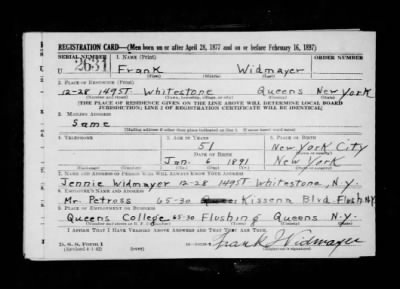 REGISTRATION CARD—(Men born on or after April 28, 1877 and on or before February 16, 1897)
SERIAL NUMBER 1. NAME (Print) ORDER NUMBER
U 2631 Frank Widmayer
(First) (Middle) (Last)
2. PLACE OF RESIDENCE (Print)
12-28 149 ST Whitestone Queens New York
(Number and street) (Town, township, village, or city) (County) (State)
[THE PLACE OF RESIDENCE GIVEN ON THE LINE ABOVE WILL DETERMINE LOCAL BOARD
JURISDICTION; LINE 2 OF REGISTRATION CERTIFICATE WILL BE IDENTICAL]
3. MAILING ADDRESS
Same
(Mailing address if other than place indicated on line 2. If same insert word same)
4. TELEPHONE 5. AGE IN YEARS 6. PLACE OF BIRTH
51 New York City
DATE OF BIRTH (Town or county)
Jan. 6 1891 New York
(Exchange) (Number) (Mo.) (Day) (Yr.) (State or country)
7. NAME AND ADDRESS OF PERSON WHO WILL ALWAYS KNOW YOUR ADDRESS
Jennie Widmayer 12-28 149 ST Whitestone, N.Y.
8. EMPLOYER'S NAME AND ADDRESS
Mr. Petross 65-30 Kissena Blvd Flush N.Y.
9. PLACE OF EMPLOYMENT OR BUSINESS
Queens College 65-30 Flushing Queens N.Y.
(Number and street or R. F. D. number) (Town) (County) (State)
I AFFIRM THAT I HAVE VERIFIED ABOVE ANSWERS AND THAT THEY ARE TRUE.
D. S. S. Form 1
(Revised 4-1-42) (over) Frank J Widmayer